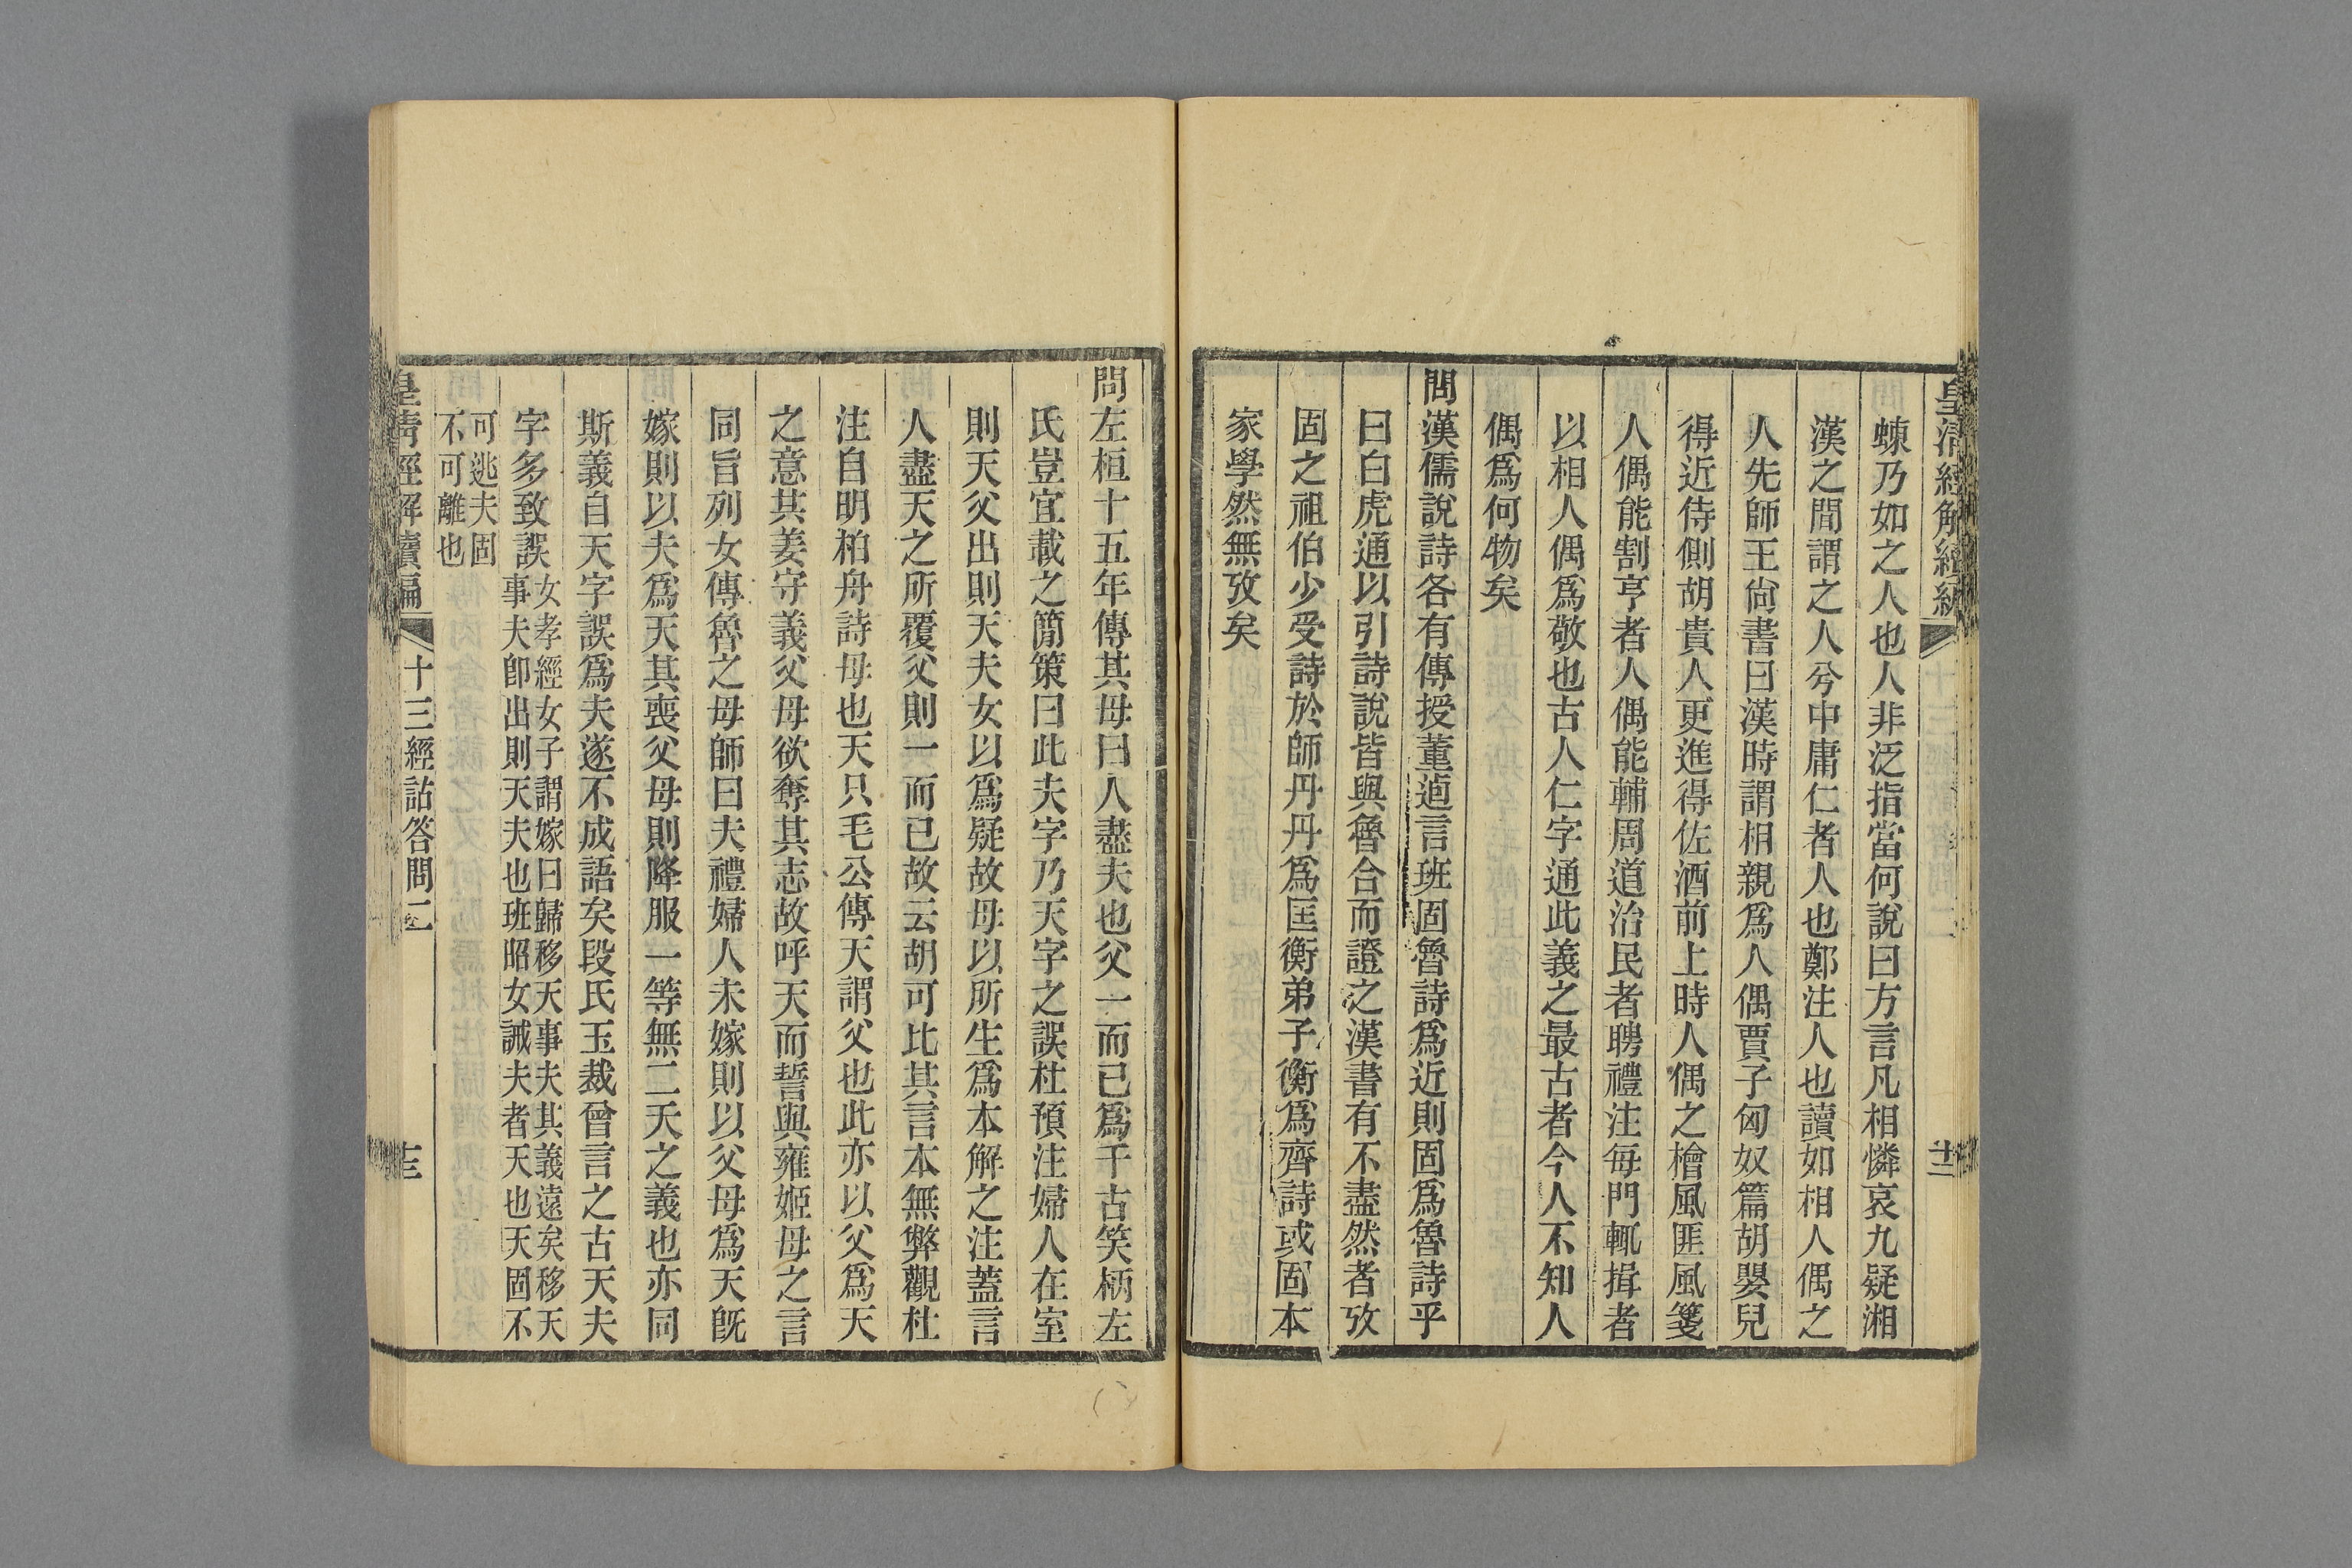 皇清經解續編
十二
蝀乃如之人也人非泛指當何說曰方言凡相憐哀九疑湘
漢之間謂之人兮中庸仁者人也鄭注人也讀如相人偶之
人先師王尙書曰漢時謂相親爲人偶賈子匈奴篇胡嬰兒
得近侍側胡貴人更進得佐酒前上時人偶之檜風匪風箋
人偶能割亨者人偶能輔周道治民者聘禮注每門輒揖者
以相人偶爲敬也古人仁字通此義之最古者今人不知人
偶爲何物矣
問漢儒說詩各有傳授董逌言班固魯詩爲近則固爲魯詩乎
曰白虎通以引詩說皆與魯合而證之漢書有不盡然者攷
固之祖伯少受詩於師丹丹爲匡衡弟子衡爲齊詩或固本
家學然無攷矣
問左桓十五年傳其母曰人盡夫也父一而已爲千古笑柄左
氏豈宜載之簡策曰此夫字乃天字之誤杜預注婦人在室
則天父出則天夫女以爲疑故母以所生爲本解之注蓋言
人盡天之所覆父則一而已故云胡可比其言本無弊觀杜
注自明柏舟詩母也天只毛公傳天謂父也此亦以父爲天
之意其姜守義父母欲奪其志故呼天而誓與雍姬母之言
同旨列女傳魯之母師曰夫禮婦人未嫁則以父母爲天旣
嫁則以夫爲天其喪父母則降服一等無二天之義也亦同
斯義自天字誤爲夫遂不成語矣段氏玉裁曾言之古天夫
字多致誤女孝經女子謂嫁曰歸移天事夫其義遠矣移天
事夫卽出則天夫也班昭女誡夫者天也天固不
可逃夫固
不可離也
皇清經解續編
十三經詁答問二
十三